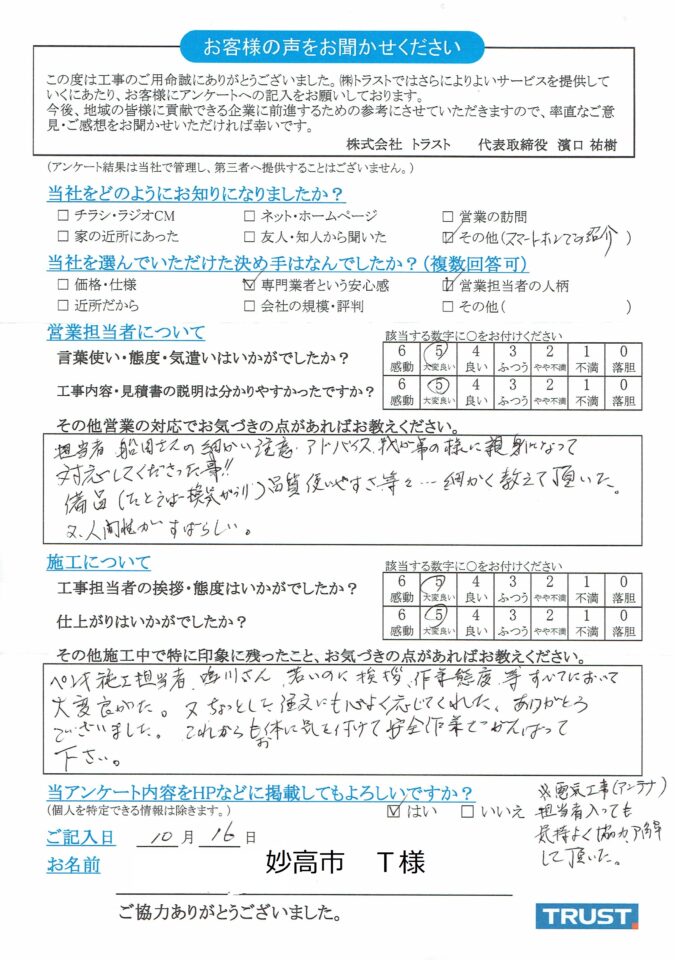 お客様の声をお聞かせください
この度は工事のご用命誠にありがとうございました。㈱トラストではさらによりよいサービスを提供して
いくにあたり、お客様にアンケートへの記入をお願いしております。
今後、地域の皆様に貢献できる企業に前進するための参考にさせていただきますので、率直なご意
見・ご感想をお聞かせいただければ幸いです。
株式会社 トラスト 代表取締役 濱口 祐樹
(アンケート結果は当社で管理し、第三者へ提供することはございません。)
当社をどのようにお知りになりましたか？
□ チラシ・ラジオCM □ ネット・ホームページ □ 営業の訪問
□ 家の近所にあった □ 友人・知人から聞いた ☑ その他(スマートホンでの紹介)
当社を選んでいただけた決め手はなんでしたか？(複数回答可)
□ 価格・仕様 ☑ 専門業者という安心感 ☑ 営業担当者の人柄
□ 近所だから □ 会社の規模・評判 □ その他( )
営業担当者について
該当する数字に○をお付けください
言葉使い・態度・気遣いはいかがでしたか？
6 5 4 3 2 1 0
感動 大変良い 良い ふつう やや不満 不満 落胆
工事内容・見積書の説明は分かりやすかったですか？
6 5 4 3 2 1 0
感動 大変良い 良い ふつう やや不満 不満 落胆
その他営業の対応でお気づきの点があればお教えください。
担当者 船田さんの細かい注意、アドバイス、我が事の様に親身になって
対応してくださった事!!
備品(たとえば換気がらり)品質使いやすさ、等々…細かく教えて頂いた。
又、人間性がすばらしい。
施工について
該当する数字に○をお付けください
工事担当者の挨拶・態度はいかがでしたか？
6 5 4 3 2 1 0
感動 大変良い 良い ふつう やや不満 不満 落胆
仕上がりはいかがでしたか？
6 5 4 3 2 1 0
感動 大変良い 良い ふつう やや不満 不満 落胆
その他施工中で特に印象に残ったこと、お気づきの点があればお教えください。
ペンキ施工担当者、川さん 若いのに挨拶、作業態度、等すべてにおいて
大変良かった。又ちょっとした注文にも心よく応じてくれた、ありがとう
ございました。これからもお体に気を付けて安全作業でがんばって
下さい。
当アンケート内容をHPなどに掲載してもよろしいですか？
(個人を特定できる情報は除きます。) ☑ はい □ いいえ
※電気工事(アンテナ)
担当者入っても
気持よく協力、了解
して頂いた。
ご記入日 10 月 16 日
お名前 妙高市 T様
ご協力ありがとうございました。
TRUST.